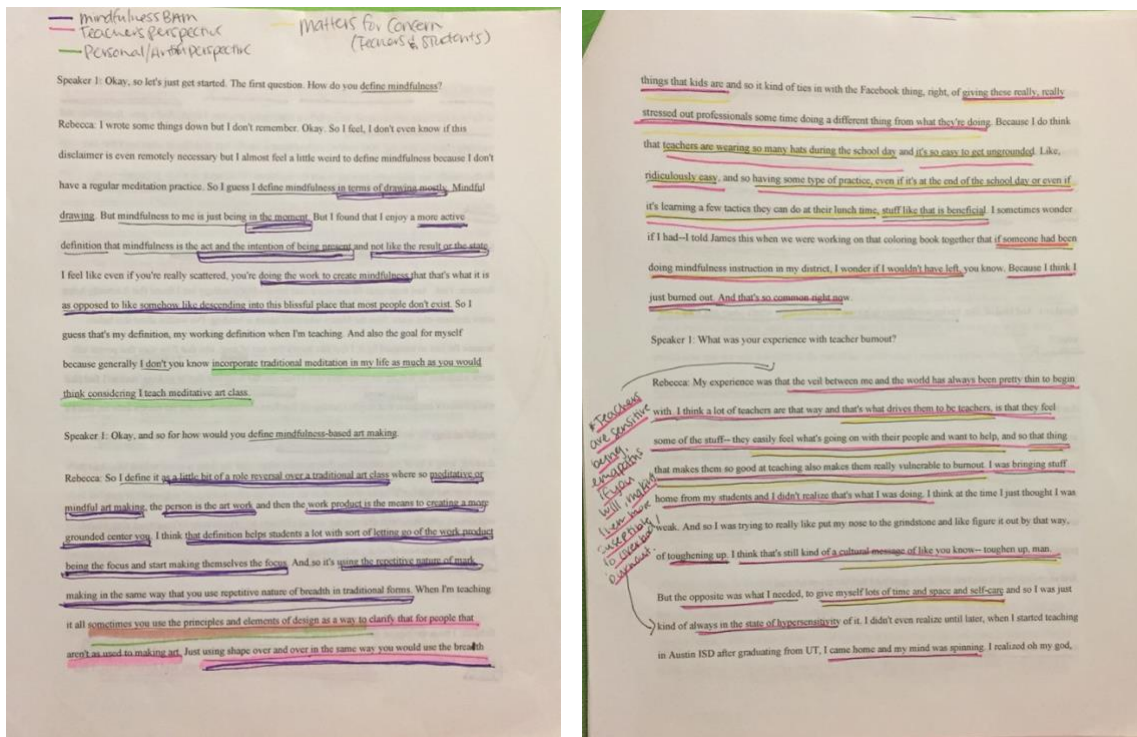 mindfulness BAM
Teachers Perspective
Personal/Artist Perspective
Matters for Concern
(Teachers & Students)
Speaker 1: Okay, so let's just get started. The first question. How do you define mindfulness?
Rebecca: I wrote some things down but I don't remember. Okay. So I feel, I don't even know if this
disclaimer is even remotely necessary but I almost feel a little weird to define mindfulness because I don't
have a regular meditation practice. So I guess I define mindfulness in terms of drawing mostly. Mindful
drawing. But mindfulness to me is just being in the moment. But I found that I enjoy a more active
definition that mindfulness is the act and the intention of being present and not like the result or the state.
I feel like even if you're really scattered, you're doing the work to create mindfulness that that's what it is
as opposed to like somehow like descending into this blissful place that most people don't exist. So I
guess that's my definition, my working definition when I'm teaching. And also the goal for myself
because generally I don't you know incorporate traditional meditation in my life as much as you would
think considering I teach meditative art class.
Speaker 1: Okay, and so for how would you define mindfulness-based art making.
Rebecca: So I define it as a little bit of a role reversal over a traditional art class where so meditative or
mindful art making, the person is the art work and then the work product is the means to creating a more
grounded center you. I think that definition helps students a lot with sort of letting go of the work product
being the focus and start making themselves the focus. And so it's using the repetitive nature of mark
making in the same way that you use repetitive nature of breadth in traditional forms. When I'm teaching
it all sometimes you use the principles and elements of design as a way to clarify that for people that
aren't as used to making art. Just using shape over and over in the same way you would use the breadth
things that kids are and so it kind of ties in with the Facebook thing, right, of giving these really, really
stressed out professionals some time doing a different thing from what they're doing. Because I do think
that teachers are wearing so many hats during the school day and it's so easy to get ungrounded. Like,
ridiculously easy, and so having some type of practice, even if it's at the end of the school day or even if
it's learning a few tactics they can do at their lunch time, stuff like that is beneficial. I sometimes wonder
if I had--I told James this when we were working on that coloring book together that if someone had been
doing mindfulness instruction in my district, I wonder if I wouldn't have left, you know. Because I think I
just burned out. And that's so common right now.
Speaker 1: What was your experience with teacher burnout?
Rebecca: My experience was that the veil between me and the world has always been pretty thin to begin
with. I think a lot of teachers are that way and that's what drives them to be teachers, is that they feel
some of the stuff-- they easily feel what's going on with their people and want to help, and so that thing
that makes them so good at teaching also makes them really vulnerable to burnout. I was bringing stuff
home from my students and I didn't realize that's what I was doing. I think at the time I just thought I was
weak. And so I was trying to really like put my nose to the grindstone and like figure it out by that way,
of toughening up. I think that's still kind of a cultural message of like you know-- toughen up, man.
But the opposite was what I needed, to give myself lots of time and space and self-care and so I was just
kind of always in the state of hypersensitivity of it. I didn't even realize until later, when I started teaching
in Austin ISD after graduating from UT, I came home and my mind was spinning. I realized oh my god,
*Teachers
are sensitive
being
empaths
will make
them more
burnout.